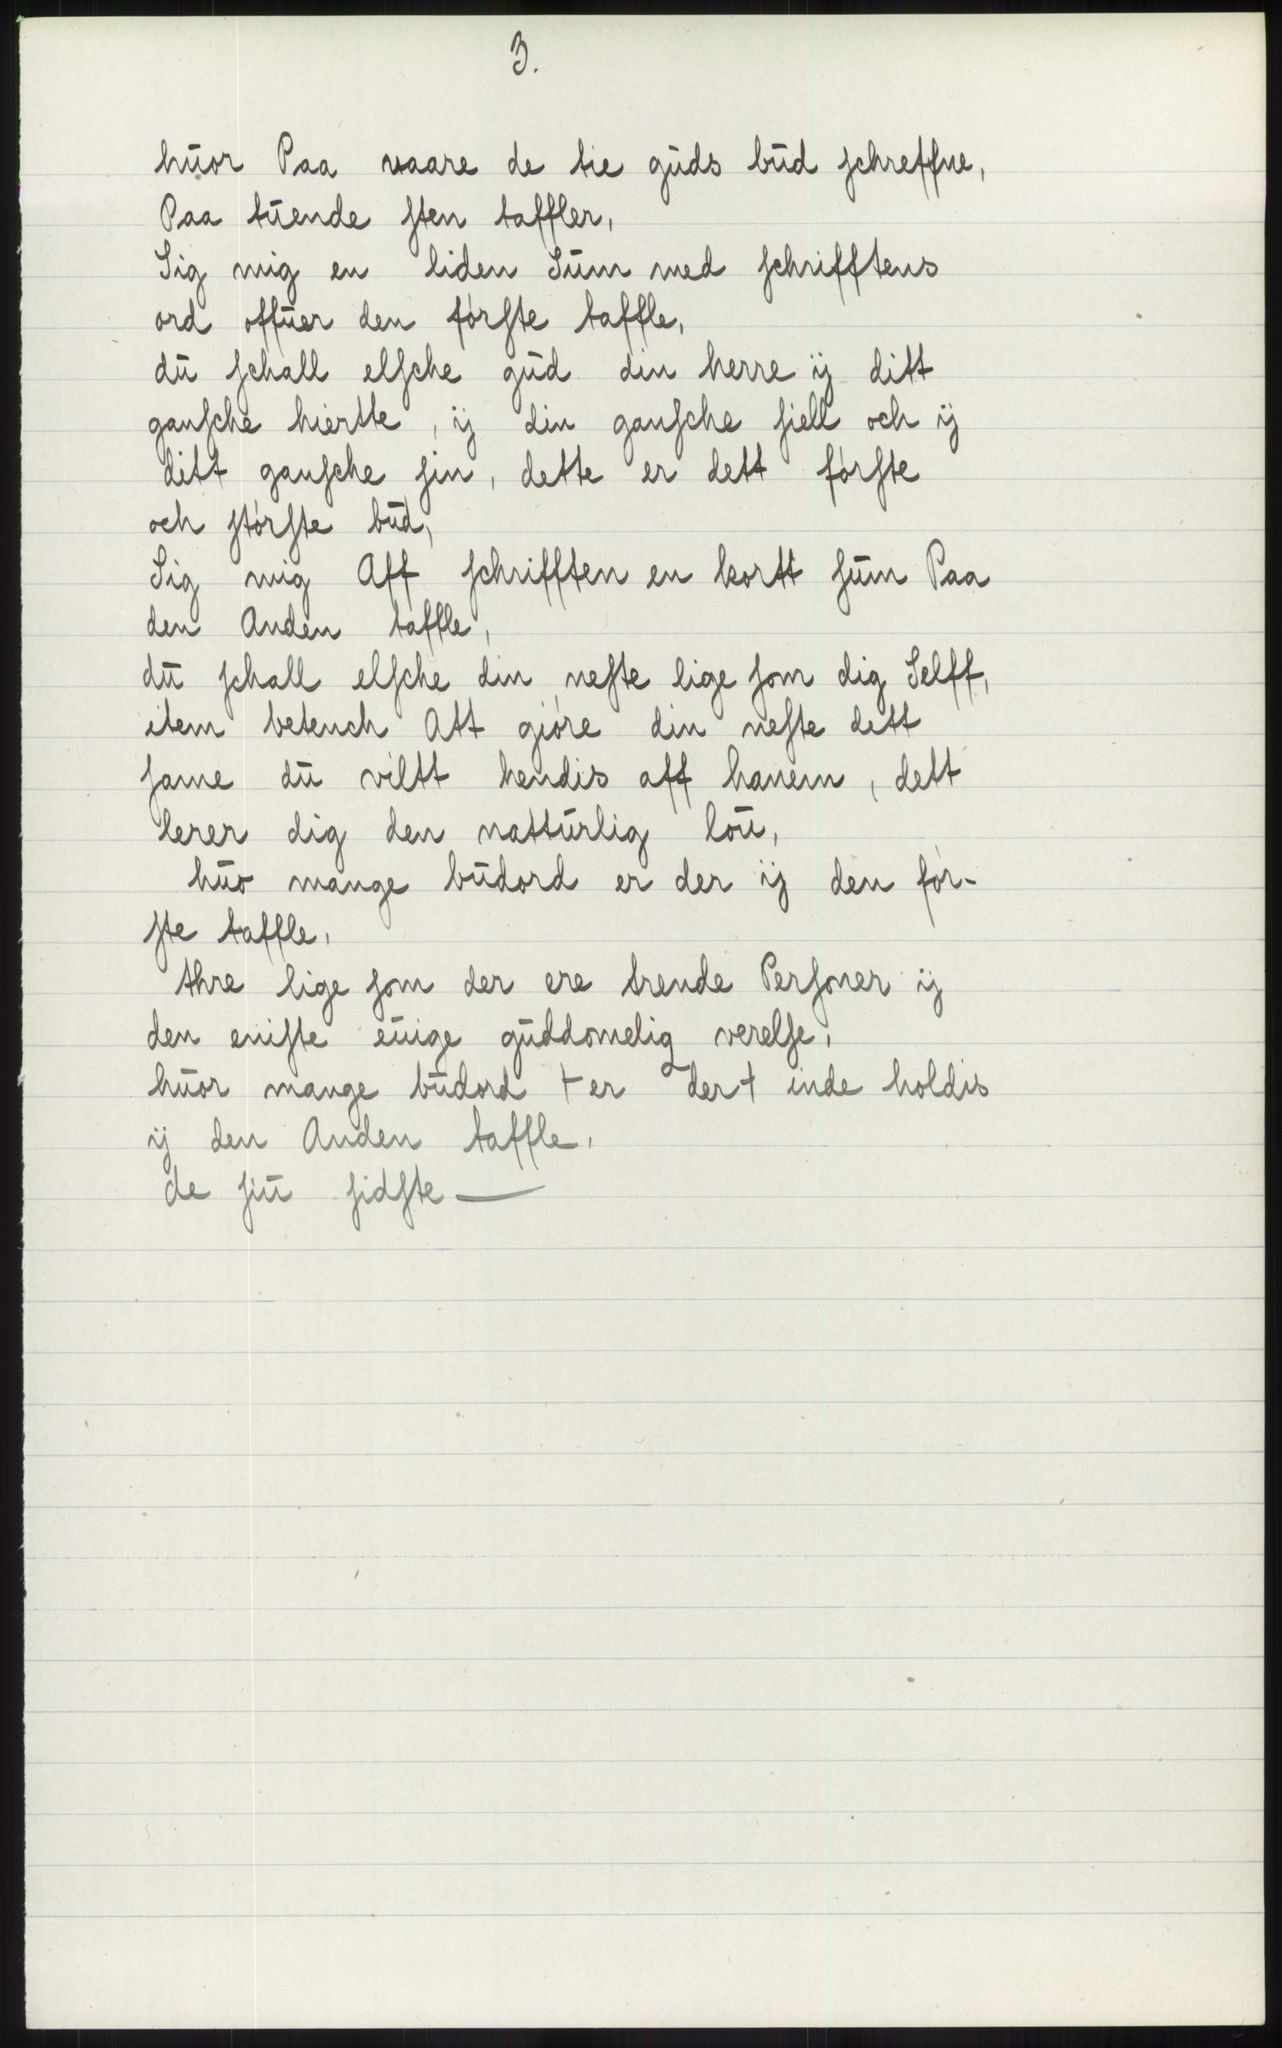 3.
huor Paa vaare de tie guds bud schreffne,
Paa tuende sten taffler,
Sig mig en liden Sum med schrifftens
ord offuer den förste taffle,
du schall elsche gud din herre ij ditt
gansche hiertte, ij din gansche siell och ij
ditt gansche sin, dette er dett förste
och störste bud,
Sig mig Aff schrifften en kortt sum Paa
den Anden taffle,
du schall elsche din neste lige som dig Selff,
item betench Att gióre din neste dett
same du viltt hendis aff hanem, dett
lerer dig den natturlig lou,
huo mange budord er der ij den för-
ste taffle,
thre lige som der ere trende Personer ij
den eniste euige guddomelig verelse,
huor mange budord + er der + inde holdis
ij den Anden taffle,
de siu sidste —